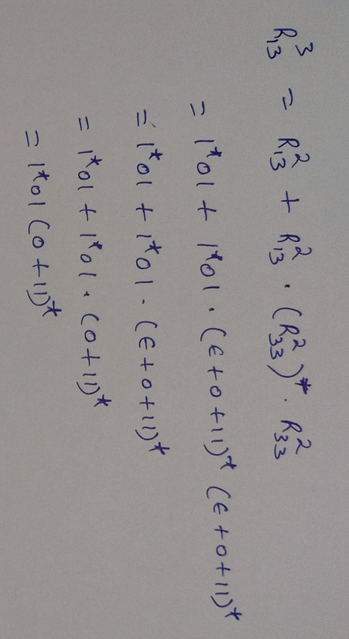 R₁₃³ = R₁₃² + R₁₃² · (R₃₃²)* · R₃₃²
= 1*01 + 1*01 · (ε+0+11)* (ε+0+11)*
= 1*01 + 1*01 · (ε+0+11)*
= 1*01 + 1*01 · (0+11)*
= 1*01 (0+11)*